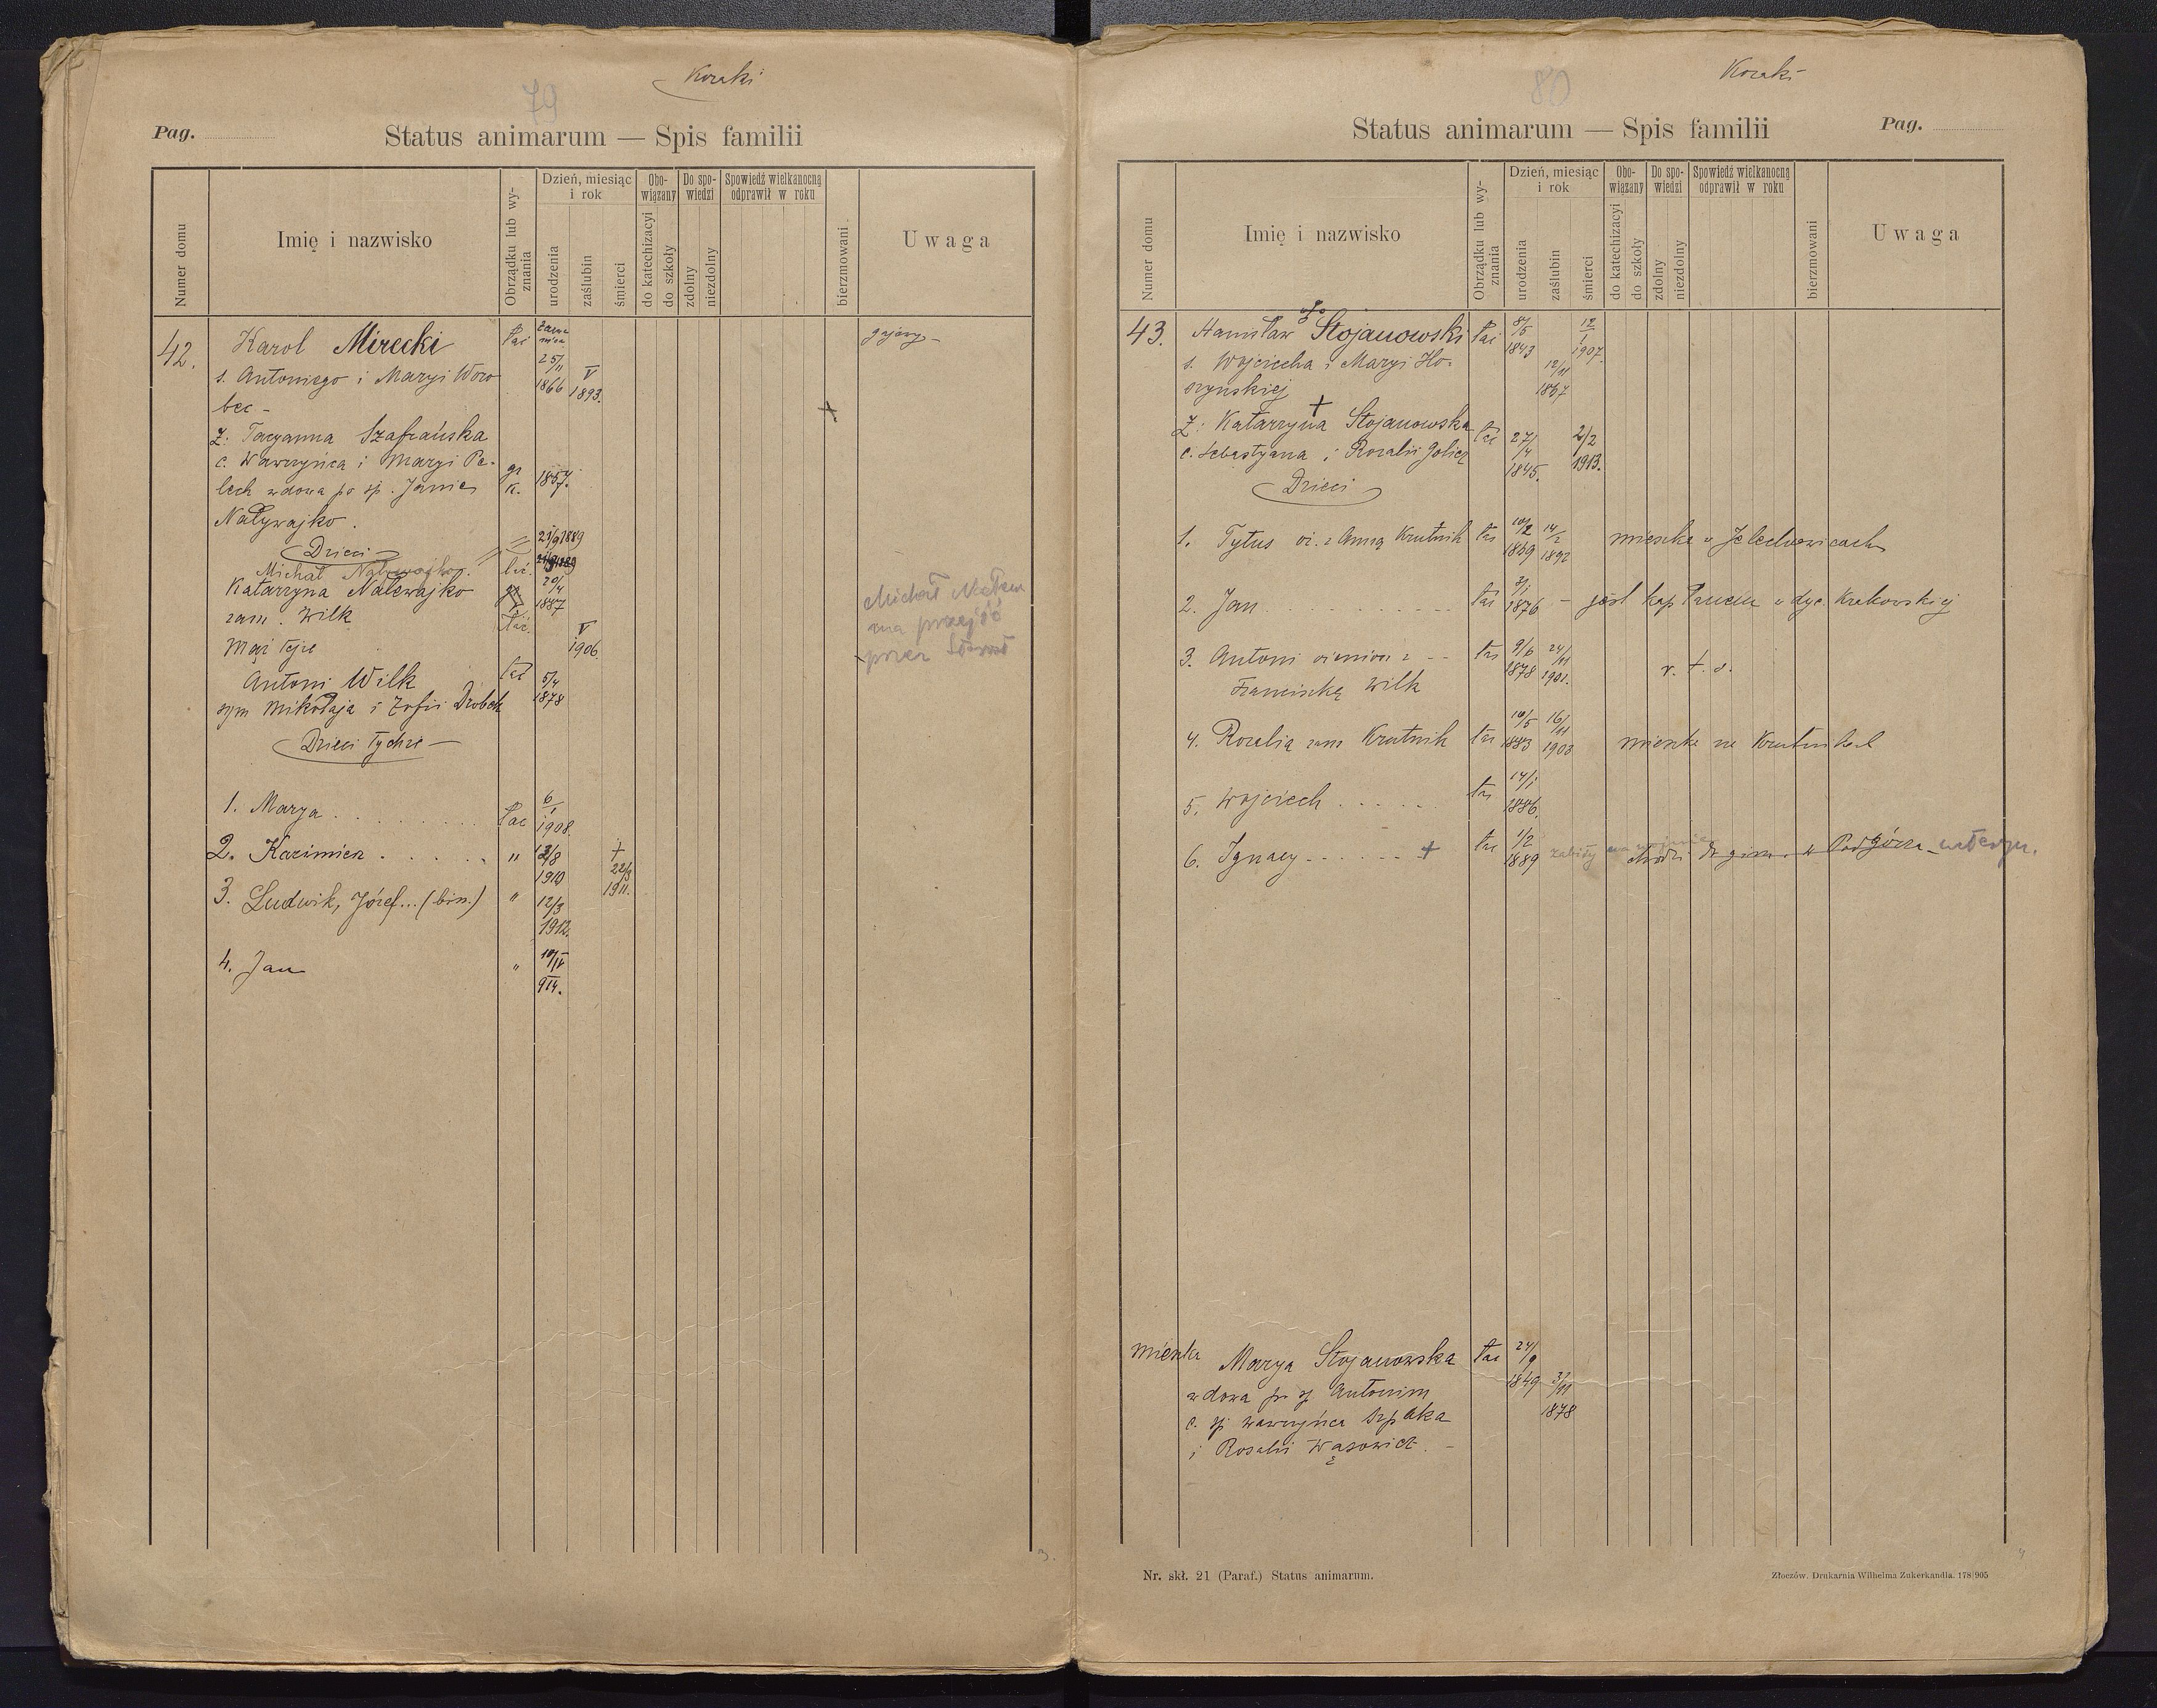 79
Kozaki
Pag.
Status animarum — Spis familii
Numer domu
Imię i nazwisko
Obrządku lub wy-
znania
Dzień, miesiąc
i rok
urodzenia
zaślubin
śmierci
Obo-
wiązany
do katechizacyi
do szkoły
Do spo-
wiedzi
zdolny
niezdolny
Spowiedź wielkanocną
odprawił w roku
bierzmowani
Uwaga
42. Karol Mirecki łac 25/11 1866 V 1893.
s. Antoniego i Maryi Woro
bec -
Ż. Tacyanna Szafrańska
c. Wawrzyńca i Maryi Pe-
lech wdowa po śp. Janie gr. k. 1857.
Nalywajko.
Dzieci
Michał Nalywajko. łać. 21/9 1889
Katarzyna Nalewajko 20/4 1887
zam. Wilk łać. V 1906.
Mąż tejże
Antoni Wilk łać 5/4 1878
syn Mikołaja i Zofii Drobek
Dzieci tychże -
Michał
ma przejść
przez
1. Marya . . . . . . . . łac 6/1 1908.
2. Kazimierz . . . . . " 1910 + 22/3 1911.
3. Ludwik, Józef... (bin.) " 12/3 1912.
4. Jan " 10/IV 914.
80
Kozaki
Status animarum — Spis familii
Pag.
Numer domu
Imię i nazwisko
Obrządku lub wy-
znania
Dzień, miesiąc
i rok
urodzenia
zaślubin
śmierci
Obo-
wiązany
do katechizacyi
do szkoły
Do spo-
wiedzi
zdolny
niezdolny
Spowiedź wielkanocną
odprawił w roku
bierzmowani
Uwaga
43. Stanisław Stojanowski łac 8/5 1843 12/1 1907.
s. Wojciecha i Maryi Ho-
szyńskiej 12/11 1867
+
Ż: Katarzyna Stojanowska łac 27/4 1845. 2/2 1913.
c. Sebastyana i Rozalii Golicz
Dzieci
1. Tytus oż. z Anną Krutnik łac 10/2 1869 14/2 1892 mieszka w Jelechowicach
2. Jan . . . . . . . . . łac 3/1 1876 - jest kap w dyec. Krakowskiej
3. Antoni ożeniony z -- łac 9/6 1878 24/11 1901. v. t. s.
Franciszką Wilk
4. Rozalia zam Krutnik łac 10/5 1883 16/11 1903 mieszka na
5. Wojciech . . . . . łac 14/1 1886.
6. Ignacy - - - - - + łac 1/2 1889 zabity na wojnie chodzi do gimn. w Podgórzu
mieszka Marya Stojanowska łac 24/9 1849 3/11 1878
wdowa po śp Antonim
c. śp Wawrzyńca Szpaka
i Rosalii Wąsowicz. -
Nr. skł. 21 (Paraf.) Status animarum.
Złoczów. Drukarnia Wilhelma Zukerkandla. 178|905